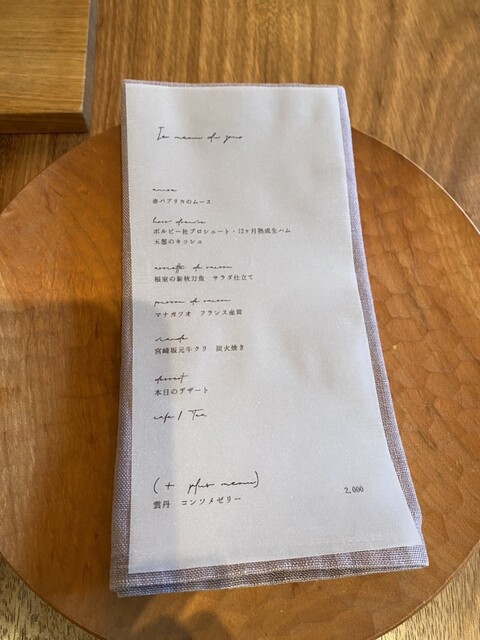 Le menu du jour
amuse
赤パプリカのムース
hors d'oeuvre
ボルピー社プロシュート・12ヶ月熟成生ハム
玉葱のキッシュ
assiette de saison
根室の新秋刀魚 サラダ仕立て
poisson de saison
マナガツオ フランス産茸
viande
宮崎坂元牛クリ 炭火焼き
dessert
本日のデザート
cafe / Tea
(+ plus menu)
雲丹 コンソメゼリー 2,000